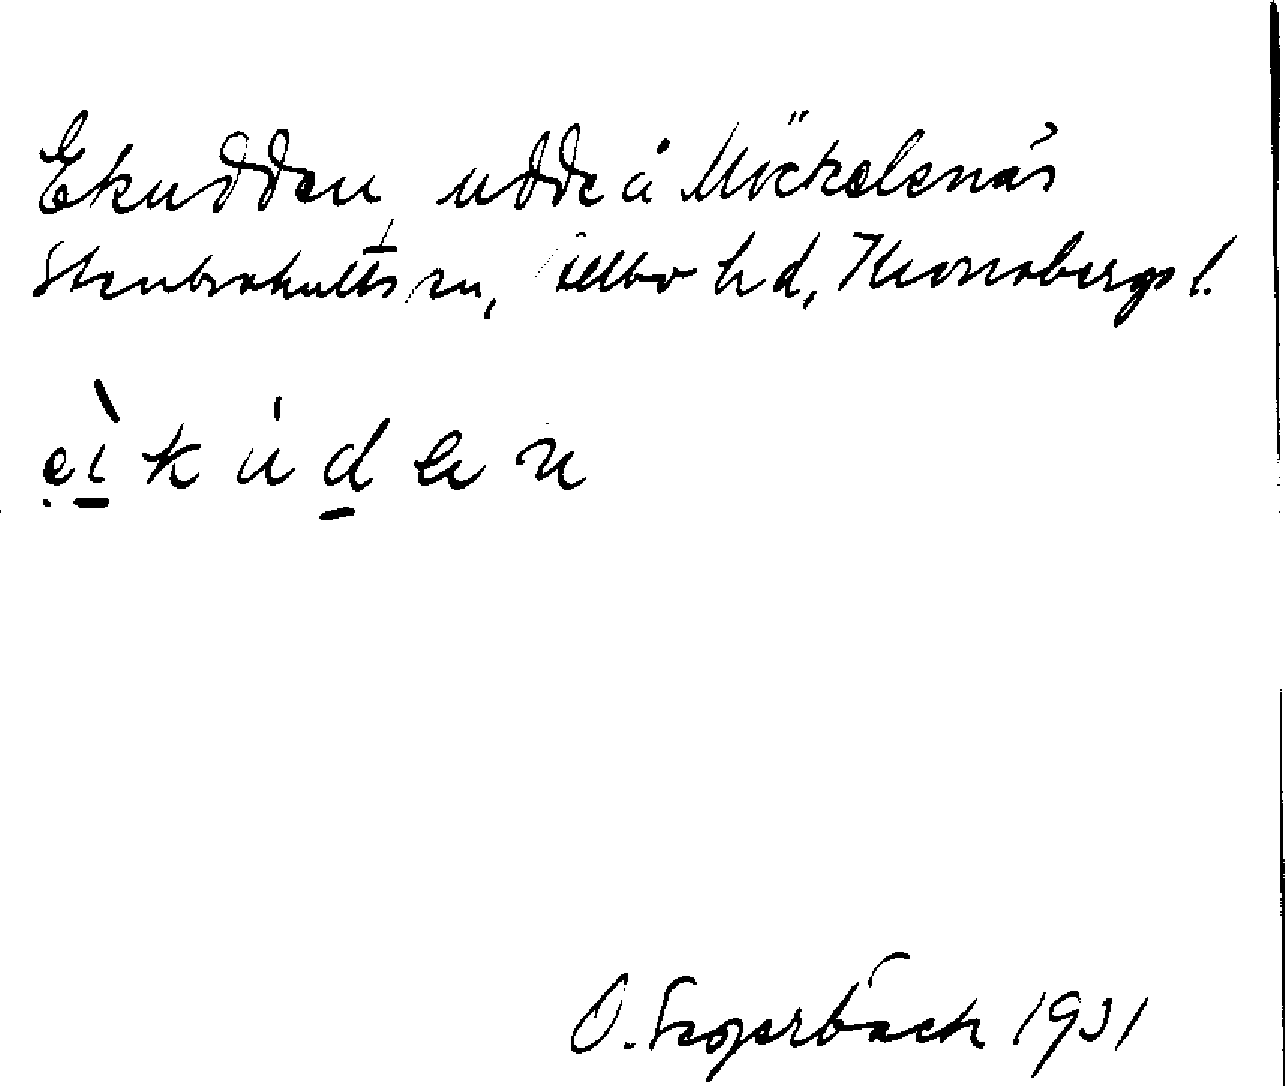 Ekudden, udde å Möckelsnäs
Stenbrohults sn, Allbo hd, Kronobergs l.
eikúden
O. Fagerbäck 1931